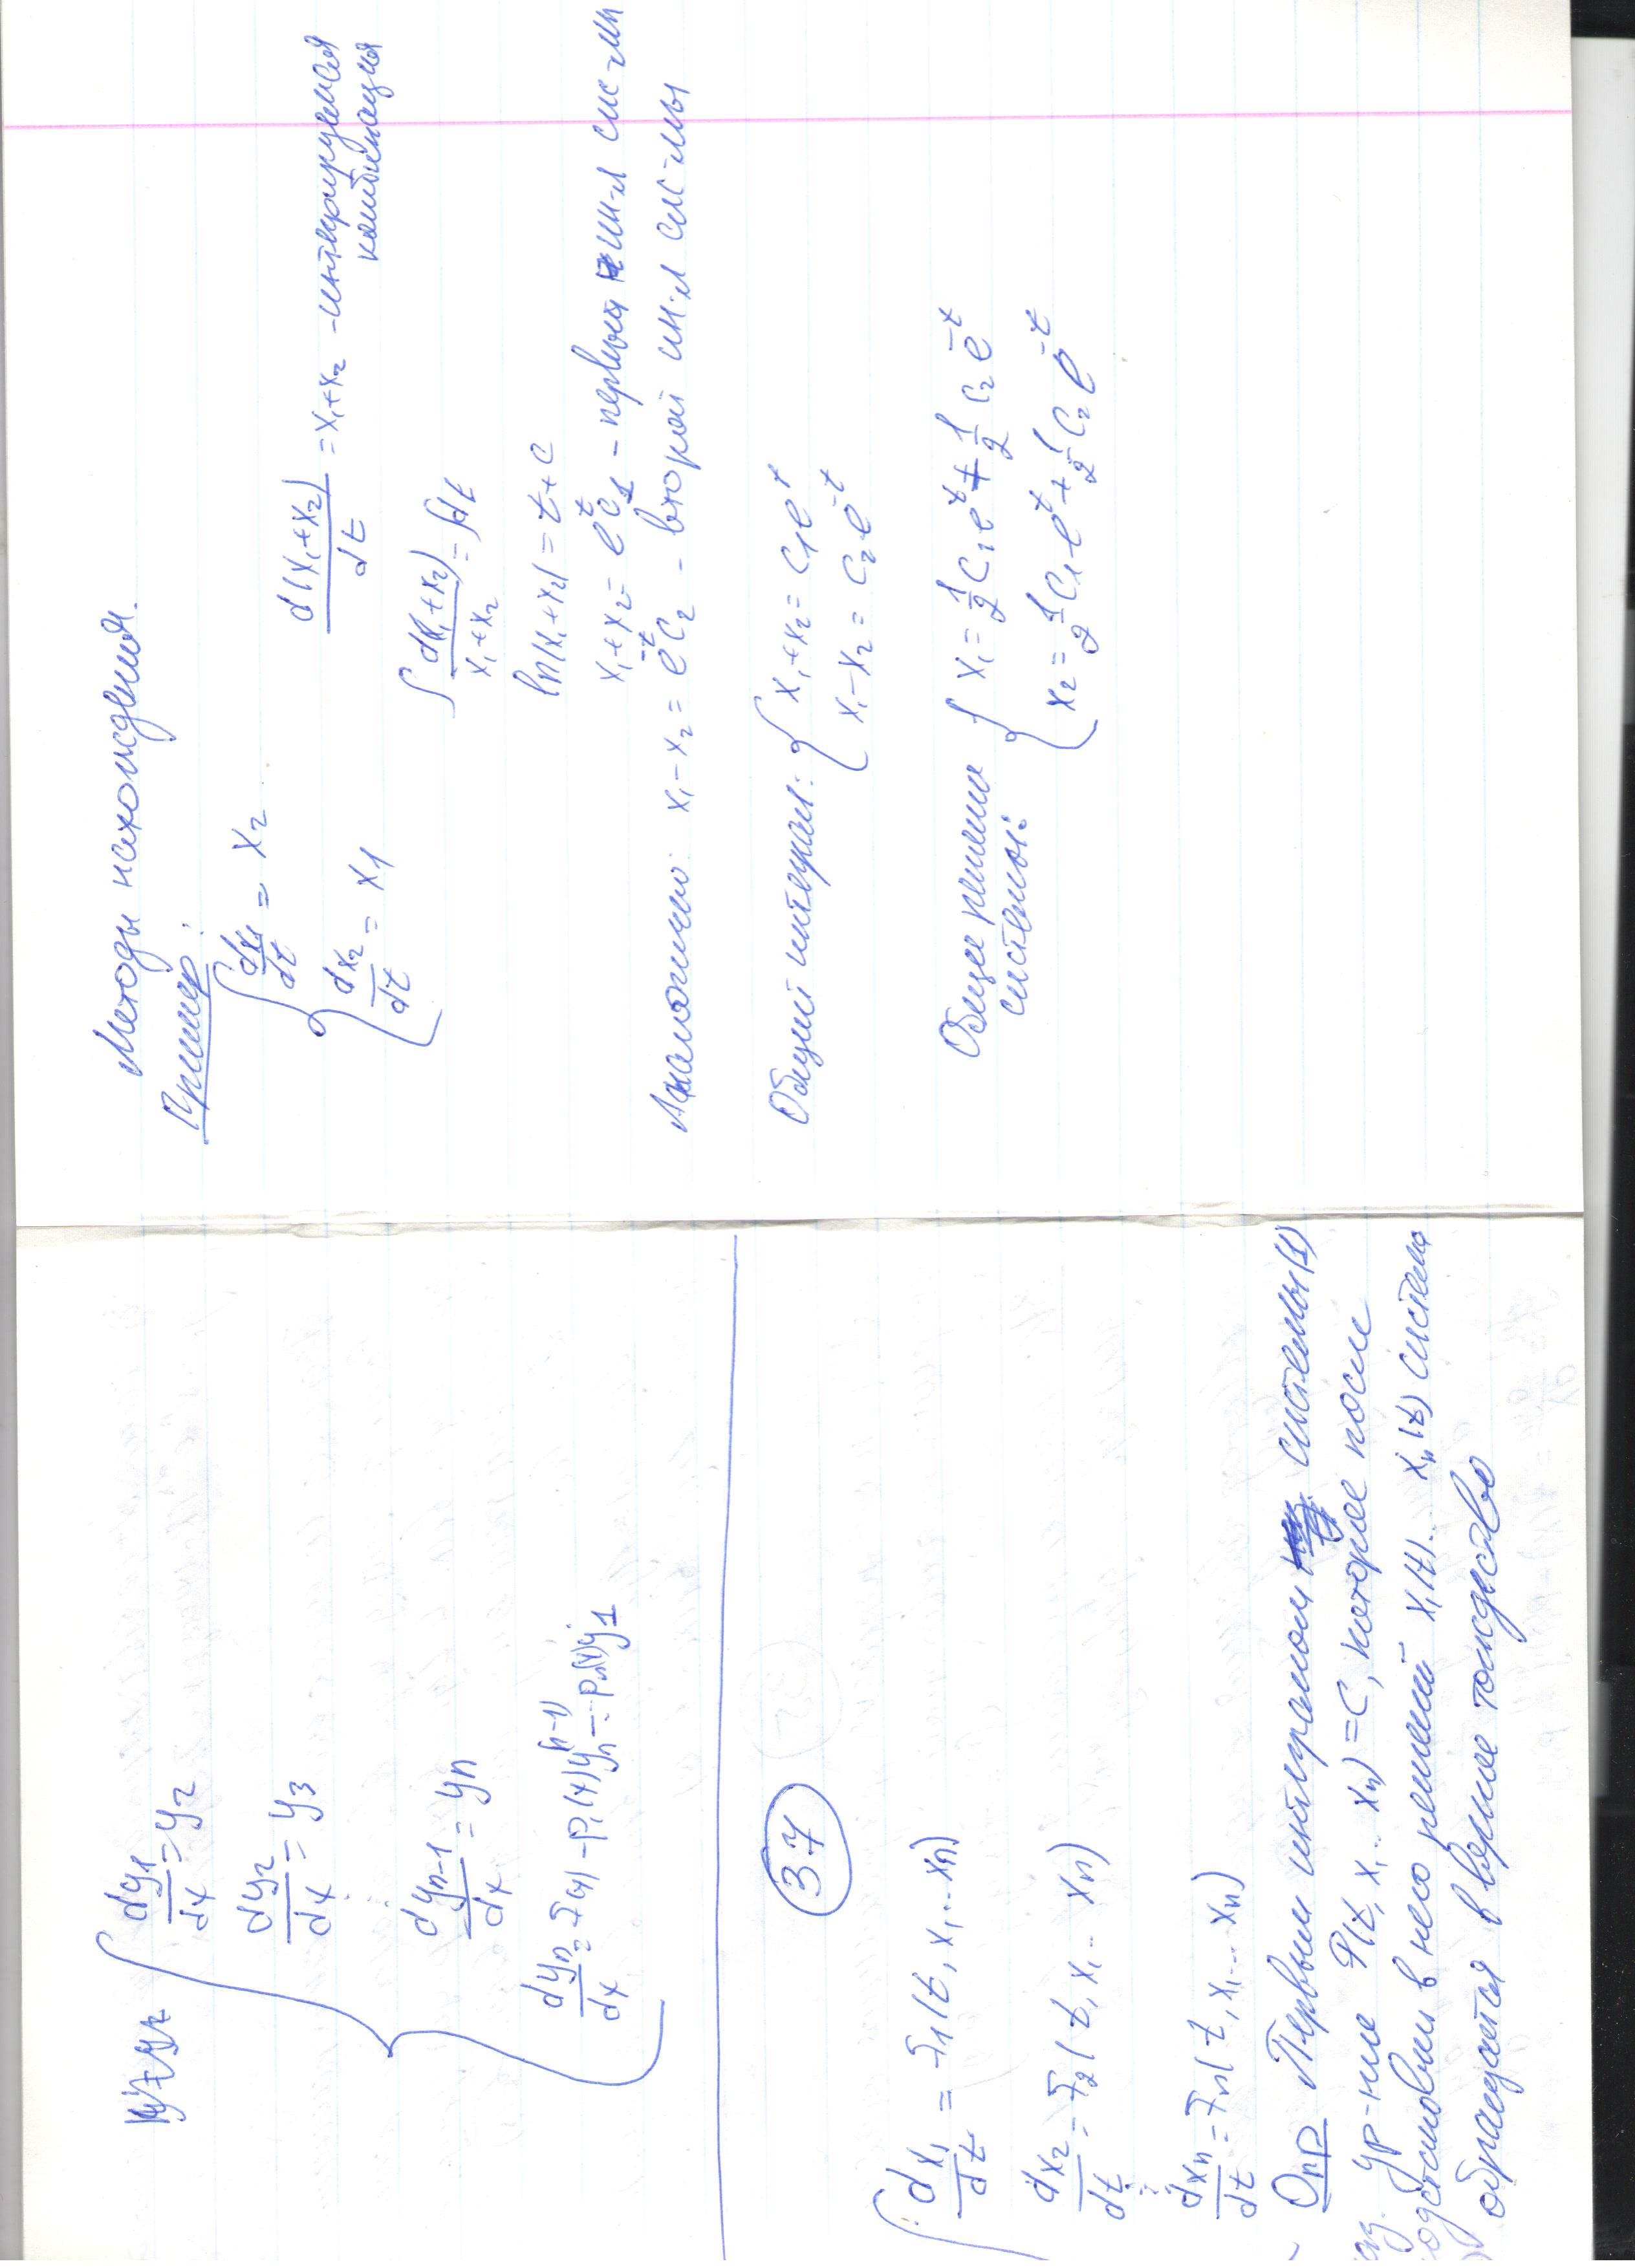 dy1/dx = y2
dy2/dx = y3
⋮
dyn-1/dx = yn
dyn/dx = f(x) - P1(x)yn - … - Pn(x)y1
37
dx1/dt = f1(t, x1 ... xn)
dx2/dt = f2(t, x1 .. xn)
⋮
dxn/dt = fn(t, x1 ... xn)
Опр Первым интегралом системы (1)
наз. ур-ние φ(t, x1 ... xn) = C, которое после
подстановки в него решений x1(t) ... xn(t) системы
обращается в верное тождество
Методы нахождения.
Пример:
{ dx1/dt = x2
dx2/dt = x1
d(x1+x2)/dt = x1+x2 - интегрируемая
комбинация
∫ d(x1+x2)/x1+x2 = ∫dt
ln(x1+x2) = t + c
x1+x2 = e^t C1 - первый ин-л сис-мы
Аналогично: x1-x2 = e^-t C2 - второй ин-л сис-мы
Общий интеграл: { x1+x2 = C1e^t
x1-x2 = C2e^-t
Общее решение { x1 = 1/2 C1e^t + 1/2 C2e^-t
системы: x2 = 1/2 C1e^t + 1/2 C2e^-t